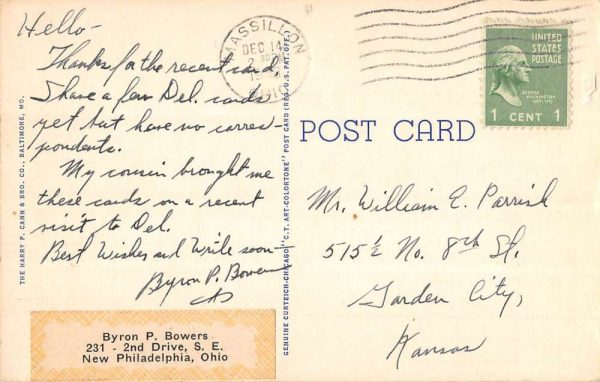 Hello-
Thanks for the recent card.
I have a few Del. cards
yet but have no corres-
pondents.
My cousin brought me
these cards on a recent
visit to Del.
Best Wishes and Write soon-
Byron P. Bowers
Byron P. Bowers
231 - 2nd Drive, S. E.
New Philadelphia, Ohio
THE HARRY P. CANN & BRO. CO., BALTIMORE, MD.
GENUINE CURTEICH-CHICAGO "C.T. ART-COLORTONE" POST CARD (REG. U.S. PAT. OFF.)
MASSILLON
DEC 14
OHIO
UNITED
STATES
POSTAGE
GEORGE
WASHINGTON
1 CENT 1
POST CARD
Mr. William E. Parrish
515½ No. 8th St.
Garden City,
Kansas